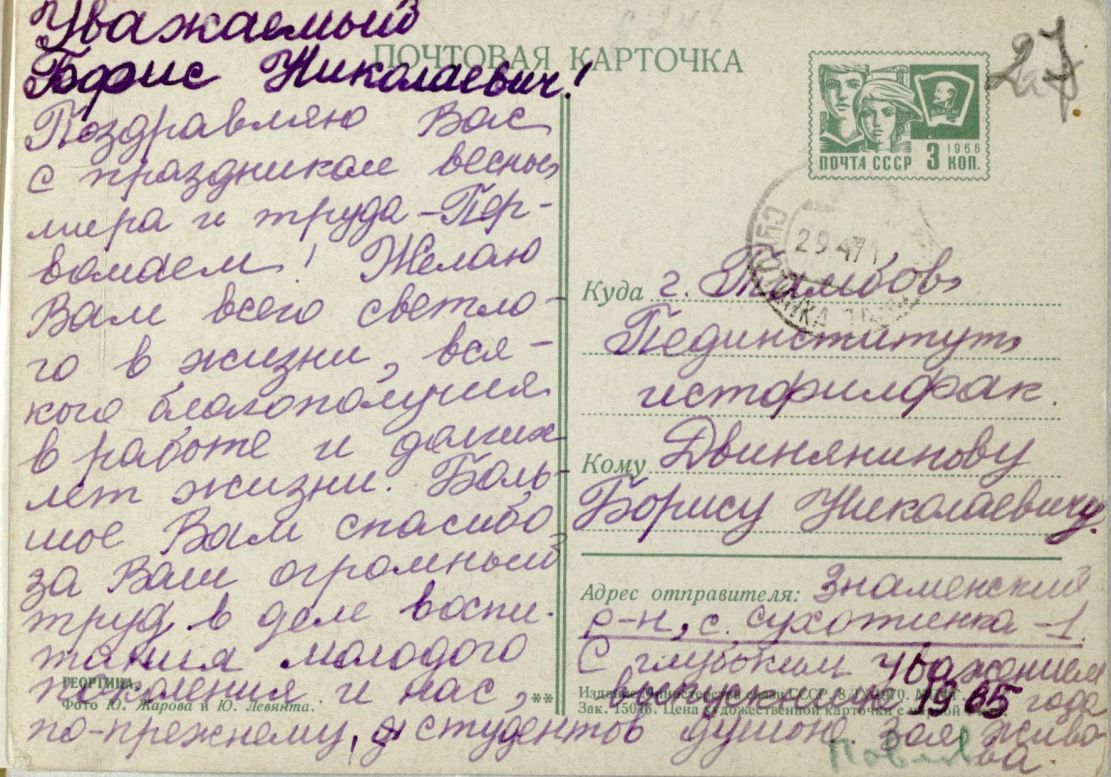 Уважаемый
Борис Николаевич!
Поздравляю Вас
с праздником весны,
мира и труда – Пер-
вомаем! Желаю
Вам всего светло-
го в жизни, вся-
кого благополучия
в работе и долгих
лет жизни. Боль-
шое Вам спасибо
за Ваш огромный
труд в деле воспи-
тания молодого
поколения и нас,
по-прежнему, студентов душою.
ГЕОРГИНА.
Фото Ю. Жарова и Ю. Левянта.
**
ПОЧТОВАЯ КАРТОЧКА
27
ВЛКСМ
1966
ПОЧТА СССР 3 КОП.
29.471
Куда г. Тамбов,
Пединститут,
исторфилфак.
Кому Двинянинову
Борису Николаевичу.
Адрес отправителя: Знаменский
р-н, с. Сухотинка-1
С глубоким уважением
выпускница 1965 года
Издание Министерства связи СССР.
Зак. 15045. Цена художественной карточки с маркой
Павлова